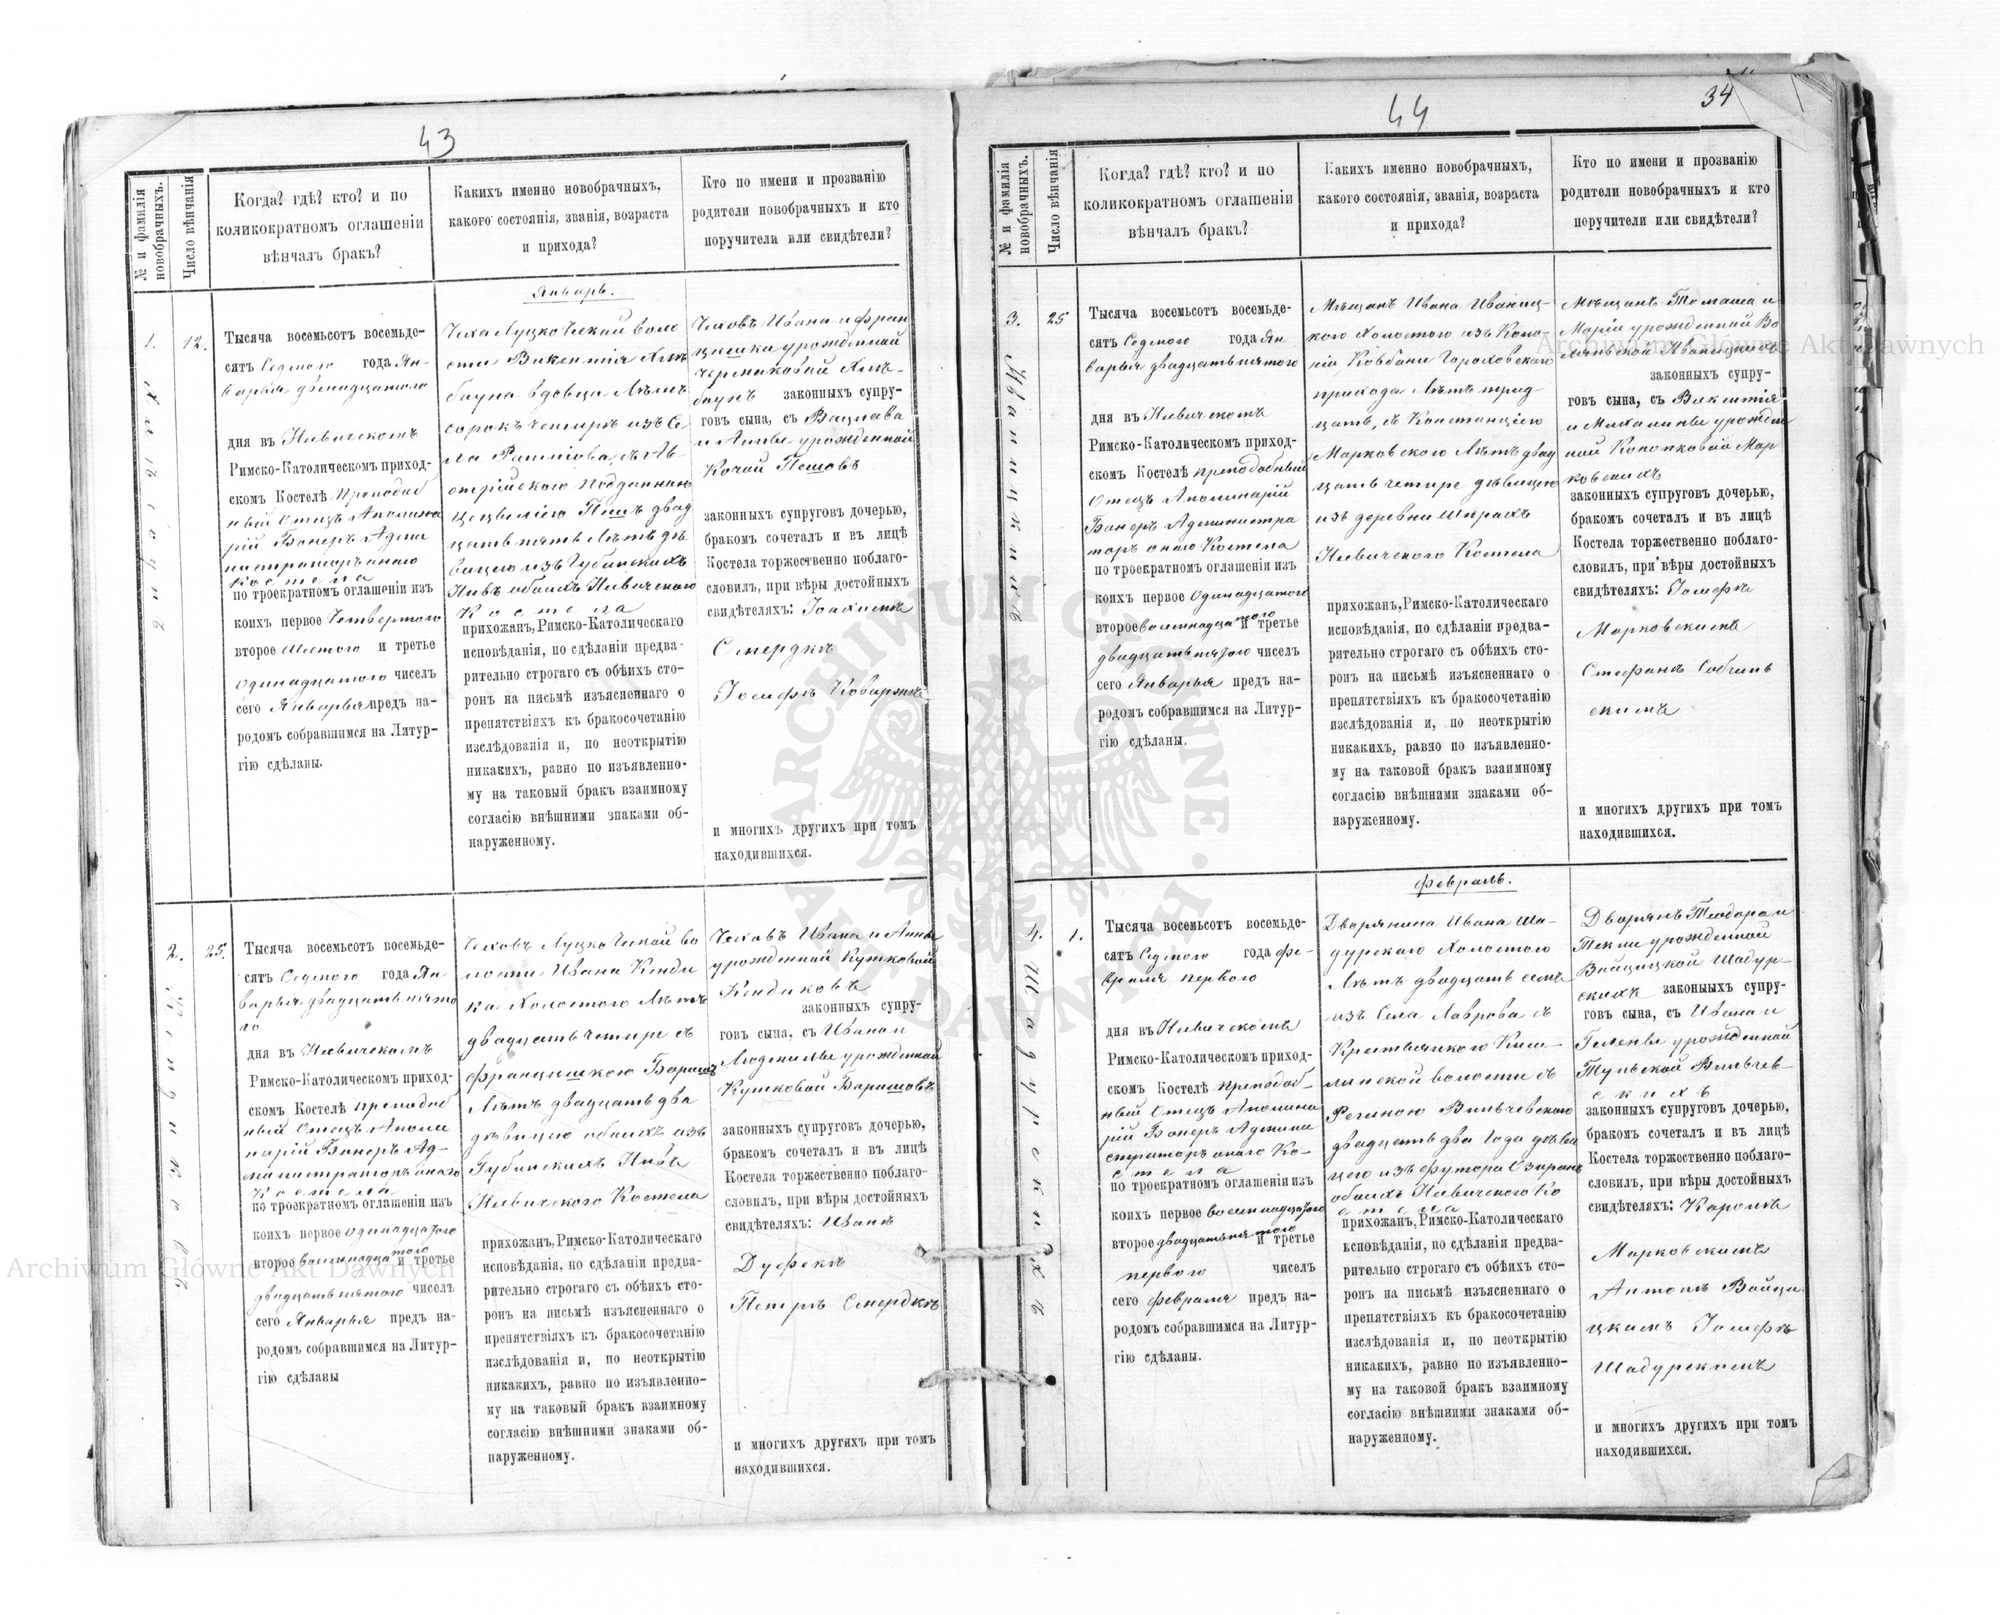 43
№ и фамилія новобрачныхъ.
Число вѣнчанія
Когда? гдѣ? кто? и по
коликократномъ оглашеніи
вѣнчалъ бракъ?
Какихъ именно новобрачныхъ,
какого состоянія, званія, возраста
и прихода?
Кто по имени и прозванію
родители новобрачныхъ и кто
поручители или свидѣтели?
Январь.
1.
12.
Тысяча восемьсотъ восемьде-
сятъ Седмого года Ян-
варья двенадцатого
дня въ Нивичскомъ
Римско-Католическомъ приход-
скомъ Костелѣ преподоб
ный Отецъ Аполина
рій Бонеръ Адми
нистраторъ онаго
Костела
по троекратномъ оглашеніи изъ
коихъ первое Четвертого
второе Шестого и третье
одинадцатого чиселъ
сего Январья предъ на-
родомъ собравшимся на Литур-
гію сдѣланы.
Чеха Луцко Чехкой воло
сти Викентія
вдовца Лѣтъ
сорокъ четыре изъ Се
ла съ Ав
стрійского Подданного
двад
цать пять Лѣтъ дѣ
вицею изъ Губинскихъ
Нивъ обоихъ Нивичского
Костела
прихожан, Римско-Католическаго
исповѣданія, по сдѣланіи предва-
рительно строгаго съ обѣихъ сто-
ронъ на письмѣ изъясненнаго о
препятствіяхъ къ бракосочетанію
изслѣдованія и, по неоткрытію
никакихъ, равно по изъявленно-
му на таковый бракъ взаимному
согласію внѣшними знаками об-
наруженному.
Чеховъ Ивана и Фран
цишки урожденной
законныхъ супру-
говъ сына, съ Вацлава
и Анны урожденной
Кочай Пешовъ
законныхъ супруговъ дочерью,
бракомъ сочеталъ и въ лицѣ
Костела торжественно поблаго-
словилъ, при вѣры достойныхъ
свидѣтеляхъ: Іоахимѣ
Смердкѣ
Іосифѣ Коваржикѣ
и многихъ другихъ при томъ
находившихся.
2.
25.
Тысяча восемьсотъ восемьде-
сятъ Седмого года Ян-
варья двадцать пято
го
дня въ Нивичскомъ
Римско-Католическомъ приход-
скомъ Костелѣ преподоб
ный Отецъ Аполи
нарій Бонеръ Ад-
министраторъ онаго
Костела
по троекратномъ оглашеніи изъ
коихъ первое одинадцатого
второе восемнадцатого и третье
двадцать пятого чиселъ
сего Январья предъ на-
родомъ собравшимся на Литур-
гію сдѣланы
Чеховъ Луцко Чехкой во
лости Ивана Кинди
ка Холостого Лѣтъ
двадцать четыре съ
Францишкою Барашъ
Лѣтъ двадцать два
дѣвицею обоихъ изъ
Губинскихъ Нивъ
Нивичского Костела
прихожан, Римско-Католическаго
исповѣданія, по сдѣланіи предва-
рительно строгаго съ обѣихъ сто-
ронъ на письмѣ изъясненнаго о
препятствіяхъ къ бракосочетанію
изслѣдованія и, по неоткрытію
никакихъ, равно по изъявленно-
му на таковый бракъ взаимному
согласію внѣшними знаками об-
наруженному.
Чеховъ Ивана и Анны
урожденной Кутковой
Киндиковъ
законныхъ супру-
говъ сына, съ Ивана и
Людмилы урожденной
Кутковой Барашовъ
законныхъ супруговъ дочерью,
бракомъ сочеталъ и въ лицѣ
Костела торжественно поблаго-
словилъ, при вѣры достойныхъ
свидѣтеляхъ: Иванѣ
Дуфекѣ
Петрѣ Смердкѣ
и многихъ другихъ при томъ
находившихся.
44
34
№ и фамилія новобрачныхъ.
Число вѣнчанія
Когда? гдѣ? кто? и по
коликократномъ оглашеніи
вѣнчалъ бракъ?
Какихъ именно новобрачныхъ,
какого состоянія, званія, возраста
и прихода?
Кто по имени и прозванію
родители новобрачныхъ и кто
поручители или свидѣтели?
3.
25
Тысяча восемьсотъ восемьде-
сятъ Седмого года Ян
варья двадцать пятого
дня въ Нивичскомъ
Римско-Католическомъ приход-
скомъ Костелѣ преподобный
Отецъ Аполинарій
Бонеръ Администра
торъ онаго Костела
по троекратномъ оглашеніи изъ
коихъ первое Одинадцатого
второе восемнадцатого и третье
двадцать пятого чиселъ
сего Январья предъ на-
родомъ собравшимся на Литур-
гію сдѣланы.
Мѣщанъ Ивана Иваниц-
кого Холостого изъ Коло-
ніи Ковбани Гороховского
прихода Лѣтъ трид-
цать, съ Констанціею
Марковского Лѣтъ двад
цать четыре дѣвицею
изъ деревни
Нивичского Костела
прихожан, Римско-Католическаго
исповѣданія, по сдѣланіи предва-
рительно строгаго съ обѣихъ сто-
ронъ на письмѣ изъясненнаго о
препятствіяхъ къ бракосочетанію
изслѣдованія и, по неоткрытію
никакихъ, равно по изъявленно-
му на таковой бракъ взаимному
согласію внѣшними знаками об-
наруженному.
Мѣщанъ Томаша и
Маріи урожденной Во
Иваницкихъ
законныхъ супру-
говъ сына, съ Викентія
и Михалины урожден
ной Конопковой Мар
ковскихъ
законныхъ супруговъ дочерью,
бракомъ сочеталъ и въ лицѣ
Костела торжественно поблаго-
словилъ, при вѣры достойныхъ
свидѣтеляхъ: Іосифѣ
Марковскимъ
Стефанѣ Собчин
скимъ
и многихъ другихъ при томъ
находившихся.
Февраль.
4.
1.
Шадурскихъ
Тысяча восемьсотъ восемьде-
сятъ Седмого года Фе-
враля первого
дня въ Нивичскомъ
Римско-Католическомъ приход-
скомъ Костелѣ преподоб-
ный Отецъ Аполина
рій Бонеръ Админи
страторъ онаго Ко-
стела
по троекратномъ оглашеніи изъ
коихъ первое восемнадцатого
второе двадцать пятого и третье
первого чиселъ
сего Февраля предъ на-
родомъ собравшимся на Литур-
гію сдѣланы.
Дворянина Ивана Ша-
дурскаго Холостого
Лѣтъ двадцать семь
изъ Села Лаврова съ
линской волости съ
двадцать два Года дѣви
цею изъ футора
обоихъ Нивичского Ко
стела
прихожан, Римско-Католическаго
ксповѣданія, по сдѣланіи предва-
рительно строгаго съ обѣихъ сто-
ронъ на письмѣ изъясненнаго о
препятствіяхъ къ бракосочетанію
изслѣдованія и, по неоткрытію
никакихъ, равно по изъявленно-
му на таковой бракъ взаимному
согласію внѣшними знаками об-
наруженному.
Дворянъ Теодора и
Теклы урожденной
Войцицкой Шадур-
скихъ законныхъ супру-
говъ сына, съ Ивана и
Гелены урожденной
Тульской Вильчев-
скихъ
законныхъ супруговъ дочерью,
бракомъ сочеталъ и въ лицѣ
Костела торжественно поблаго-
словилъ, при вѣры достойныхъ
свидѣтеляхъ: Каролѣ
Марковскимъ
Антонѣ Войци
цкимъ Іосифѣ
Шадурскимъ
и многихъ другихъ при томъ
находившихся.
Archiwum Główne Akt Dawnych
Archiwum Główne Akt Dawnych
ARCHIWUM GŁÓWNE AKT DAWNYCH